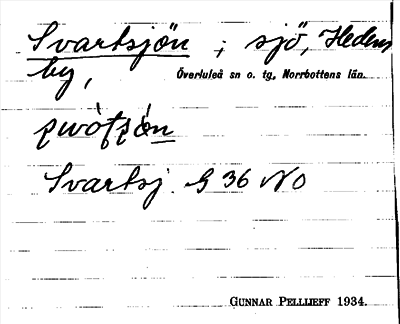 Svartsjön ; sjö, Hedens
by, Överluleå sn o. tg, Norrbottens län.
Svartsj. G 36 NO
GUNNAR PELLIJEFF 1934.